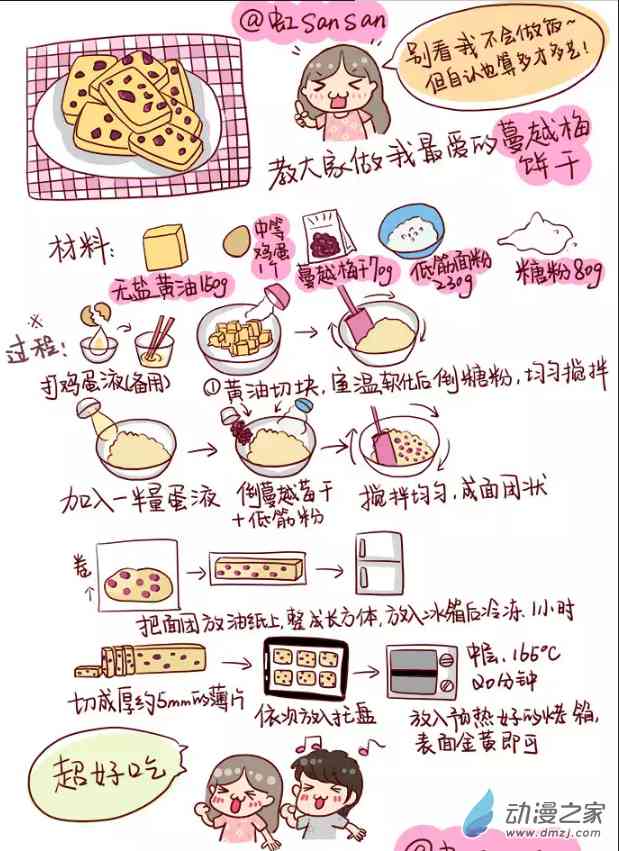 @虹SanSan
别看我不会做饭~
但自认也算多才多艺!
教大家做我最爱的蔓越梅
饼干
材料:
无盐黄油150g
中等
鸡蛋
1个
蔓越梅干70g
低筋面粉
230g
糖粉80g
※
过程:
打鸡蛋液(备用)
①黄油切块,室温软化后倒糖粉,均匀搅拌
加入一半量蛋液
倒蔓越莓干
+低筋粉
搅拌均匀,成面团状
卷
把面团放油纸上,整成长方体,放入冰箱后冷冻1小时
切成厚约5mm的薄片
依次放入托盘
中层、165°C
20分钟
放入预热好的烤箱,
表面金黄即可
超好吃
动漫之家
www.dmzj.com